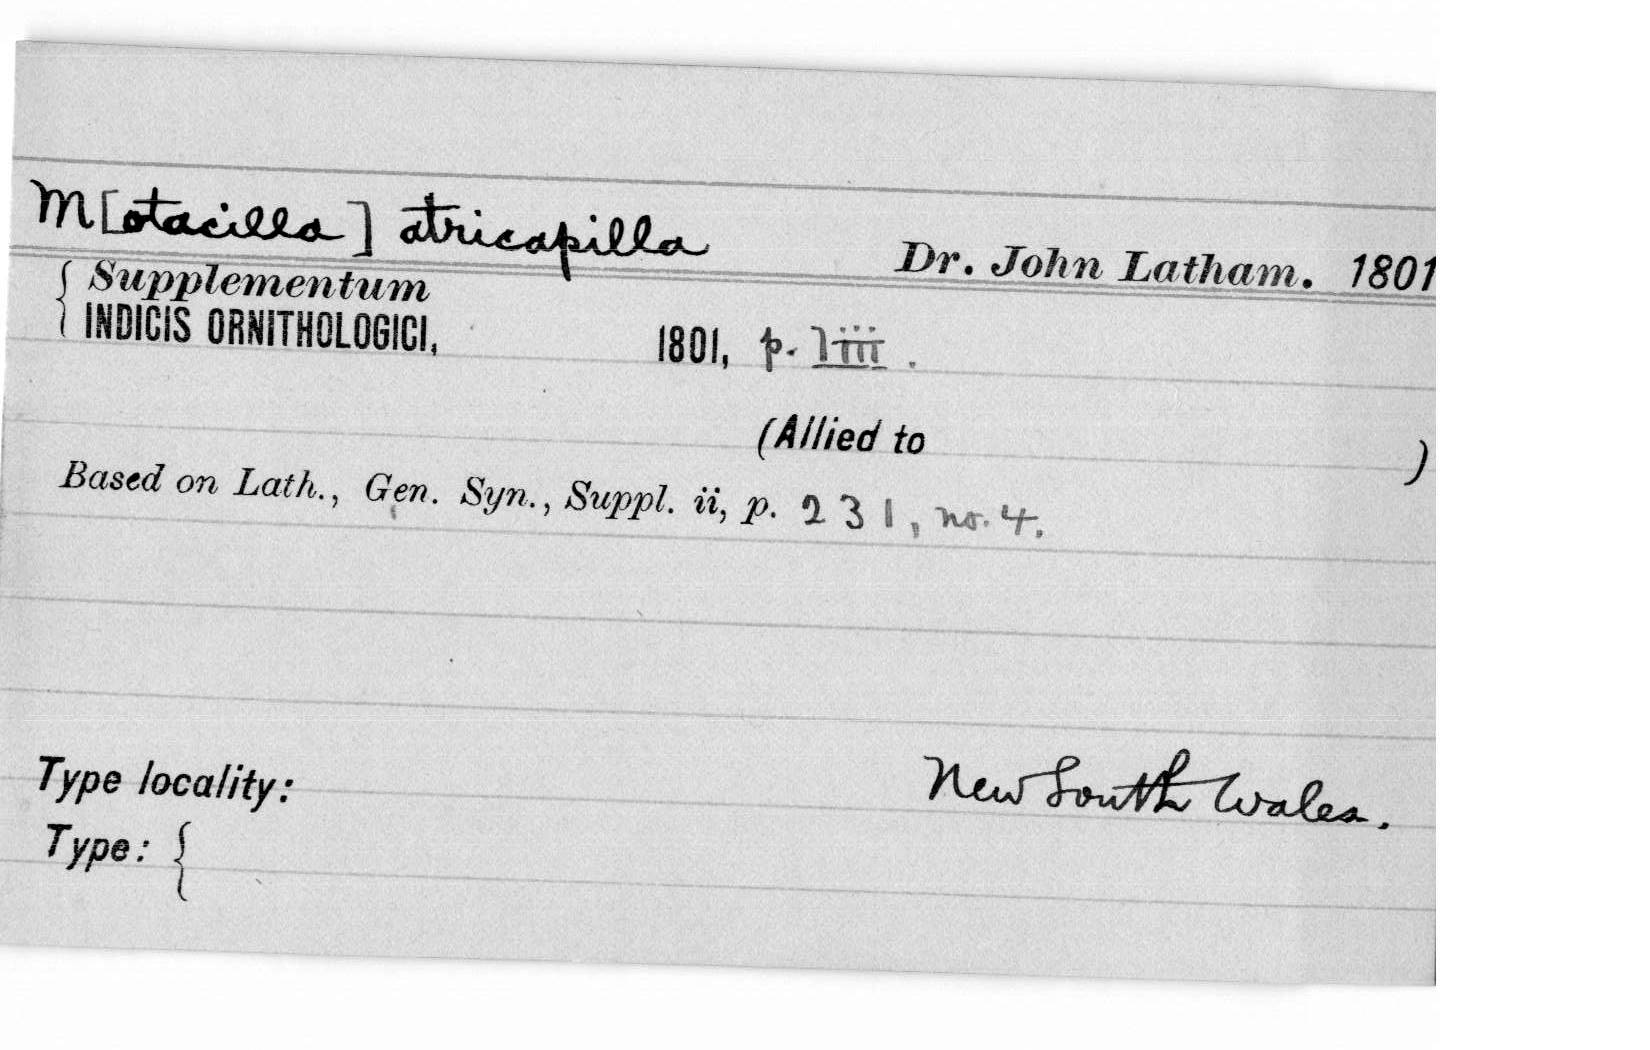 M[otacilla] atricapilla Dr. John Latham. 1801
Supplementum
INDICIS ORNITHOLOGICI, 1801, p. liii.
(Allied to )
Based on Lath., Gen. Syn., Suppl. ii, p. 231, no. 4.
Type locality: New South Wales.
Type: